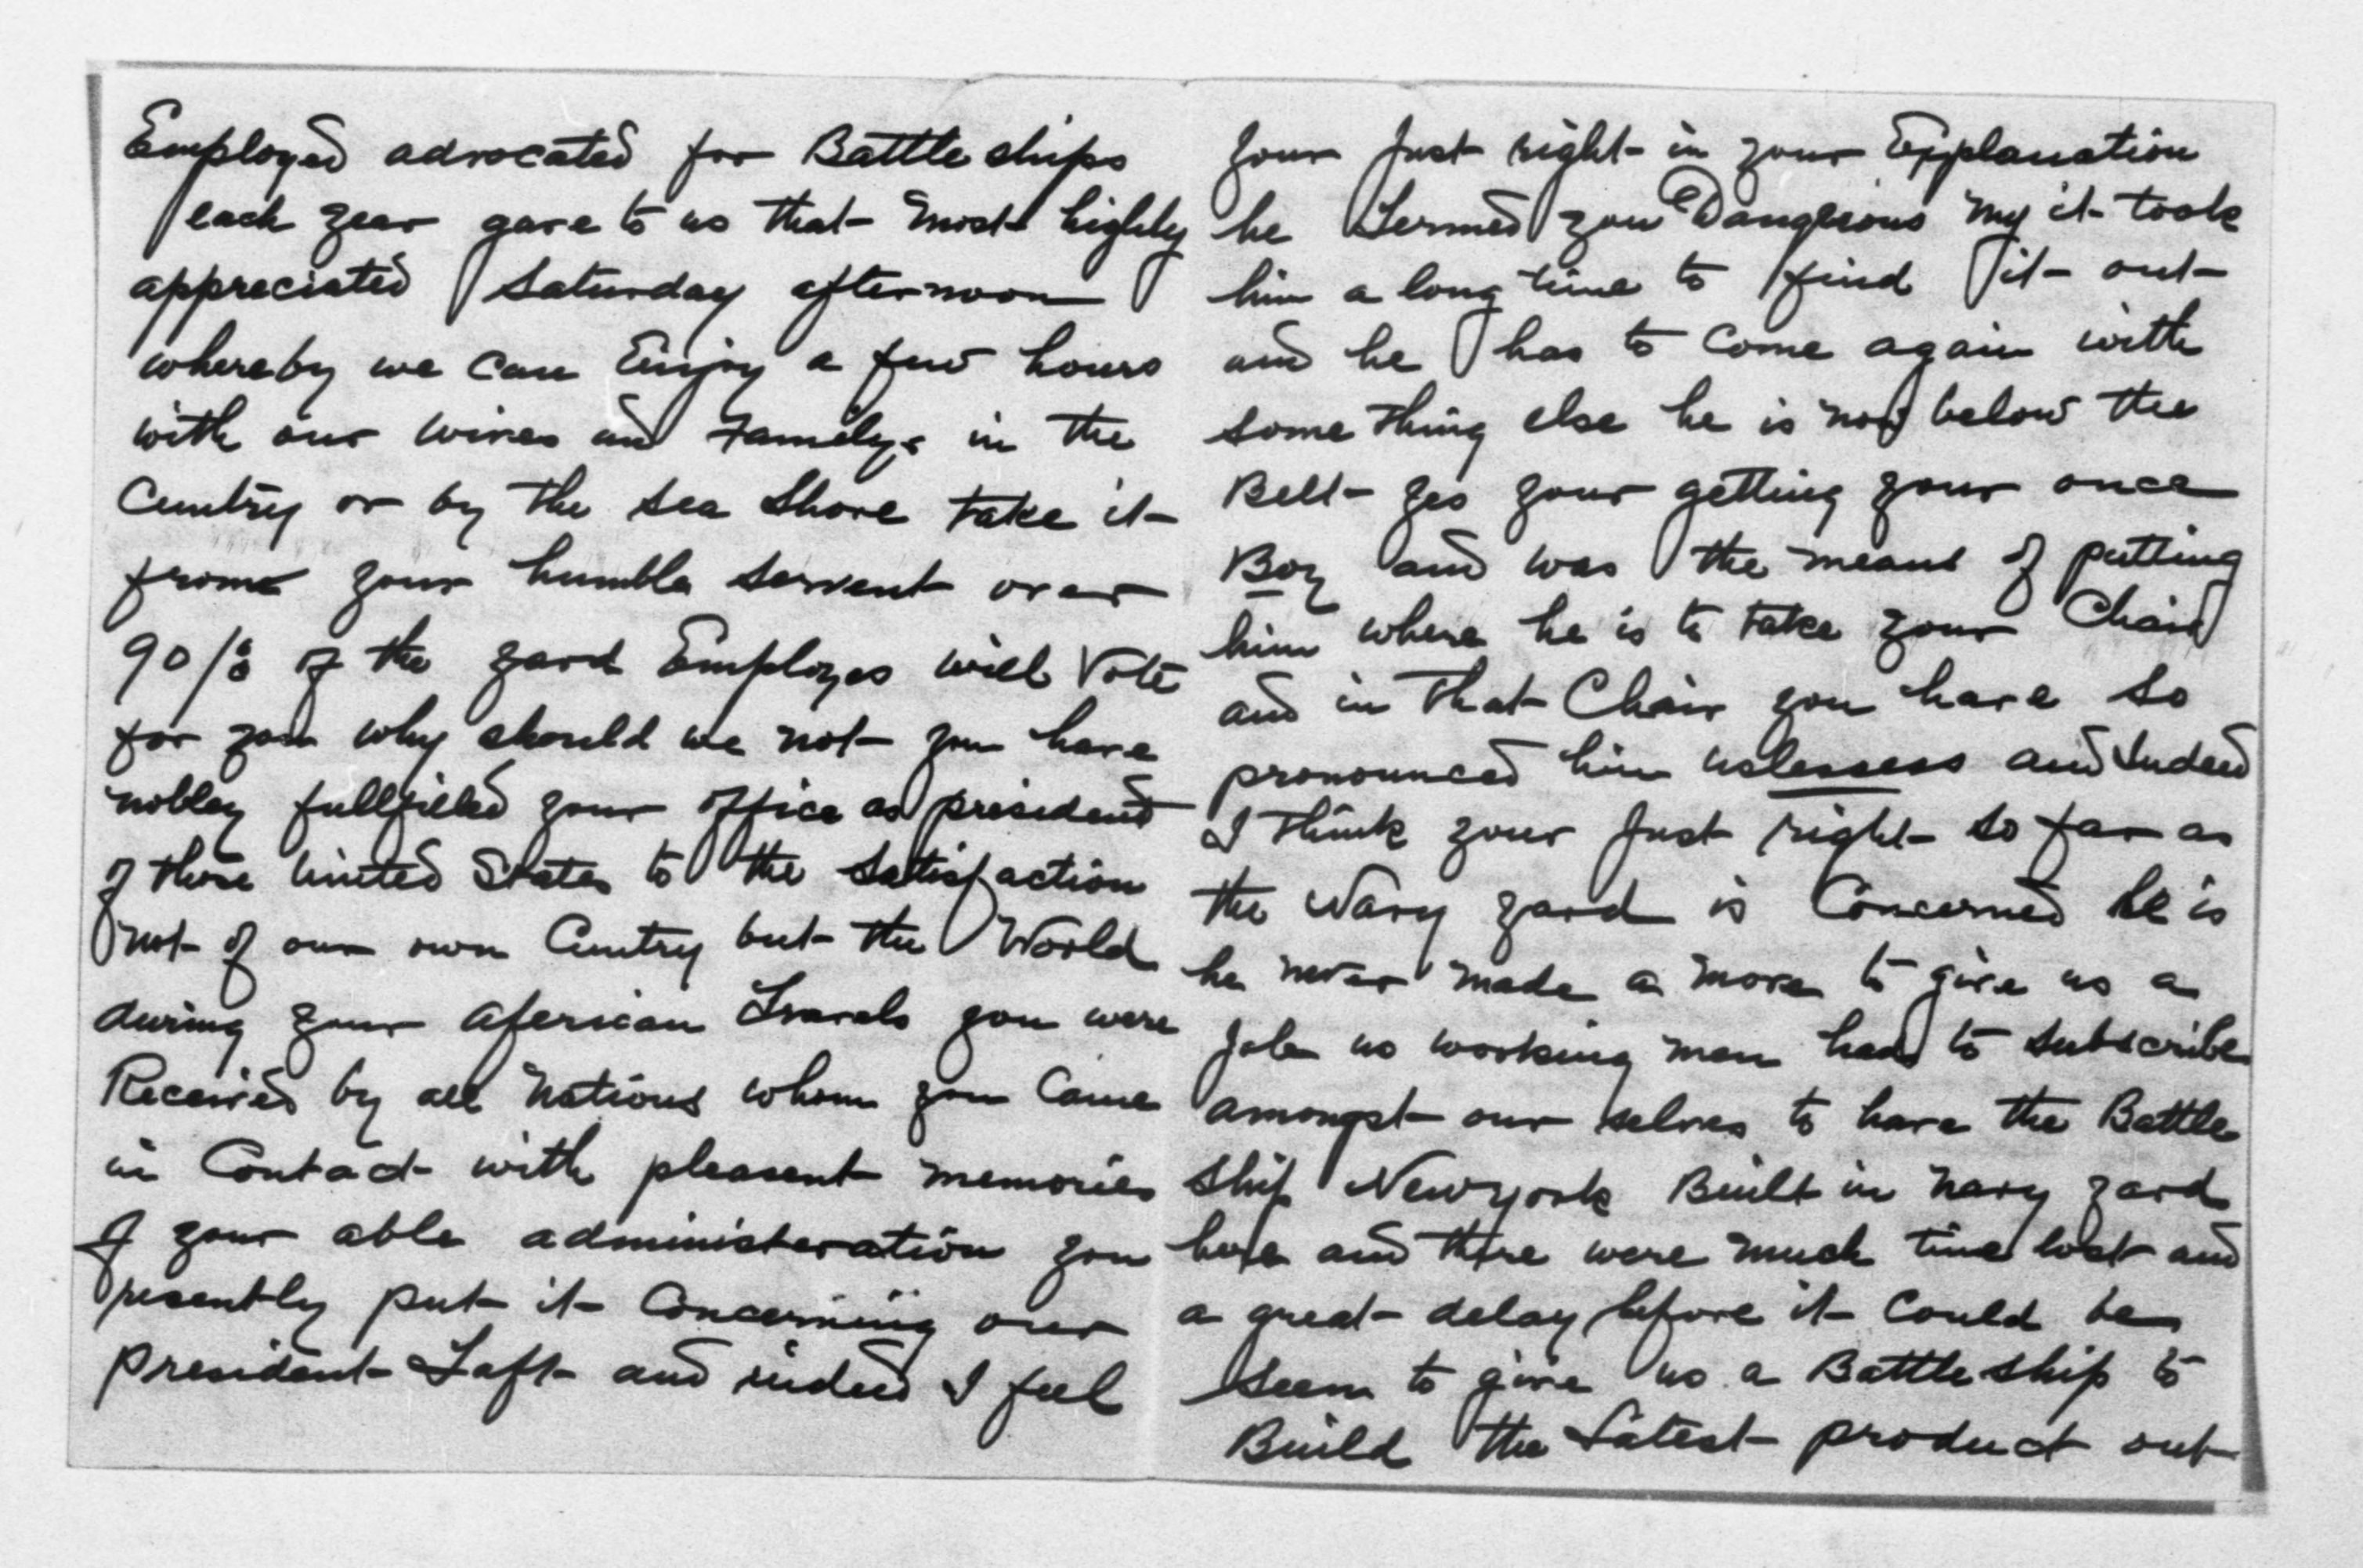 Employed advocated for Battle ships
each year gave to us that most highly
appreciated Saturday afternoon
whereby we can Enjoy a few hours
with our wives and Familys in the
Cuntry or by the sea shore take it
from your humble servent over
90% of the yard Employes will Vote
for you why should we not you have
nobley fullfilled your office as president
of these United States to the satisfaction
not of our own Cuntry but the World
during your Aferican Travels you were
Received by all Nations whom you Came
in Contact with pleasent memories
of your able administeration you
presently put it Concerning our
President Taft and indeed I feel
your Just right in your Explanation
he Termed you Dangerous my it took
him a long time to find it out
and he has to Come again with
some thing else he is now below the
Belt yes your getting your once
Boy and was the means of putting
him where he is to take your Chair
and in that Chair you have so
pronounced him uslessess and Indeed
I think your Just right so far as
the Navy yard is Concerned he is
he never made a move to give us a
Job us working men had to subscribe
amongst our selves to have the Battle
ship Newyork Built in navy yard
here and there were much time lost and
a great delay before it Could be
seen to give us a Battle ship to
Build the Latest product out